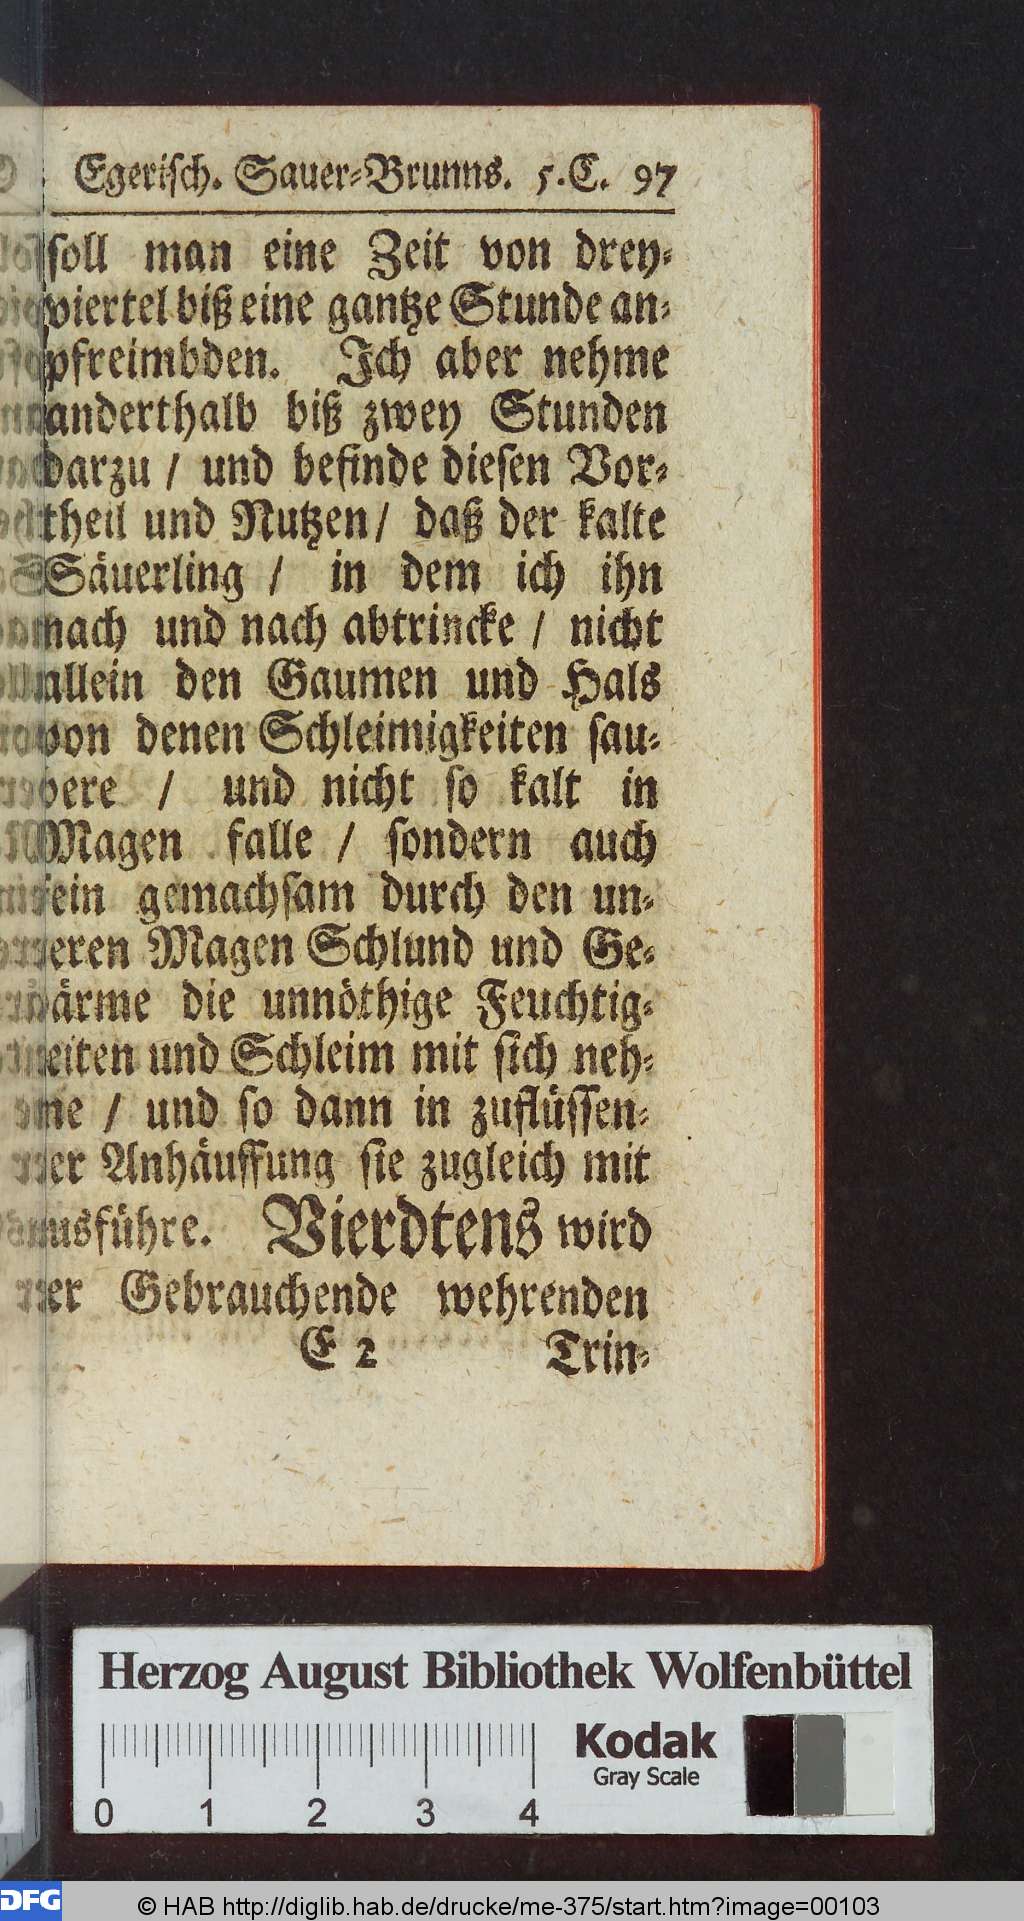 Egerisch. Sauer-Brunns. 5.C. 97
soll man eine Zeit von drey-
viertel biß eine gantze Stunde an-
pfreimbden. Ich aber nehme
anderthalb biß zwey Stunden
darzu / und befinde diesen Vor-
theil und Nutzen / daß der kalte
Säuerling / in dem ich ihn
nach und nach abtrincke / nicht
allein den Gaumen und Hals
von denen Schleimigkeiten sau-
bere / und nicht so kalt in
Magen falle / sondern auch
fein gemachsam durch den un-
teren Magen Schlund und Ge-
därme die unnöthige Feuchtig-
keiten und Schleim mit sich neh-
me / und so dann in zuflüssen-
der Anhäuffung sie zugleich mit
ausführe. Vierdtens wird
der Gebrauchende wehrenden
E 2 Trin-
Herzog August Bibliothek Wolfenbüttel
Kodak
Gray Scale
0 1 2 3 4
DFG © HAB http://diglib.hab.de/drucke/me-375/start.htm?image=00103